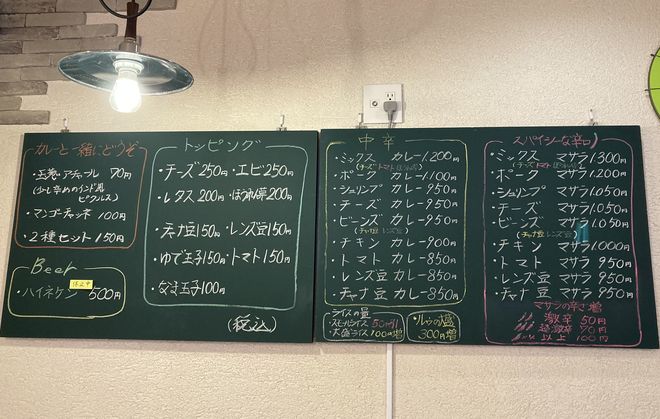 カレーと一緒にどうぞ
・玉葱アチャール 70円
(少し辛めのインド風
ピクルス)
・マンゴーチャツネ 100円
・2種セット 150円
Beer
・ハイネケン 500円
トッピング
・チーズ250円 ・エビ250円
・レタス200円 ・ほうれん草200円
・チャナ豆150円 ・レンズ豆150円
・ゆで玉子150円 ・トマト150円
・なま玉子100円
(税込)
中辛
・ミックス カレー1.200円
(チーズ トマト ほうれん草)
・ポーク カレー1.100円
・シュリンプ カレー950円
・チーズ カレー950円
・ビーンズ カレー950円
(チャナ豆 レンズ豆)
・チキン カレー900円
・トマト カレー850円
・レンズ豆 カレー850円
・チャナ豆 カレー850円
ライスの量
・スモールライス 50円引
・大盛ライス 100円増
・ルゥ大盛
300円増
スパイシーな辛口
・ミックス マサラ1.300円
(チーズ トマト ほうれん草)
・ポーク マサラ1.200円
・シュリンプ マサラ1.050円
・チーズ マサラ1.050円
・ビーンズ マサラ1.050円
(チャナ豆 レンズ豆)
・チキン マサラ1.000円
・トマト マサラ950円
・レンズ豆 マサラ950円
・チャナ豆 マサラ950円
マサラの辛さ増
激辛 50円
超激辛 70円
以上 100円